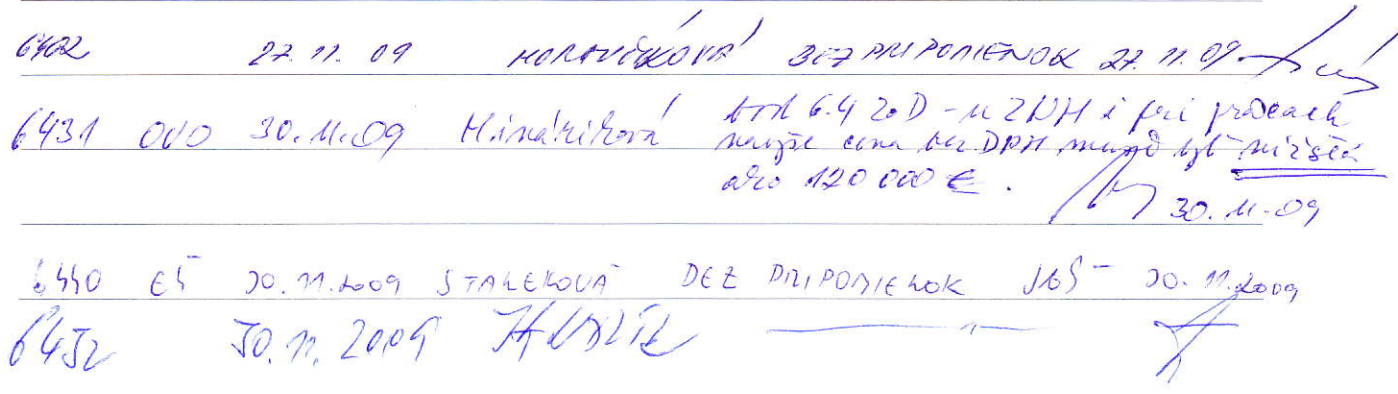 6402 27.11.09 MORAVČÍKOVÁ BEZ PRIPOMIENOK 27.11.09
6431 OVO 30.11.09 Mináriková bod 6.4 ZoD - u ZNH i pri prácach
cena bez DPH musí byť nižšia
ako 120 000 €.
30.11.09
6440 EŠ 30.11.2009 STANEKOVÁ BEZ PRIPOMIENOK 30.11.2009
6452 30.11.2009